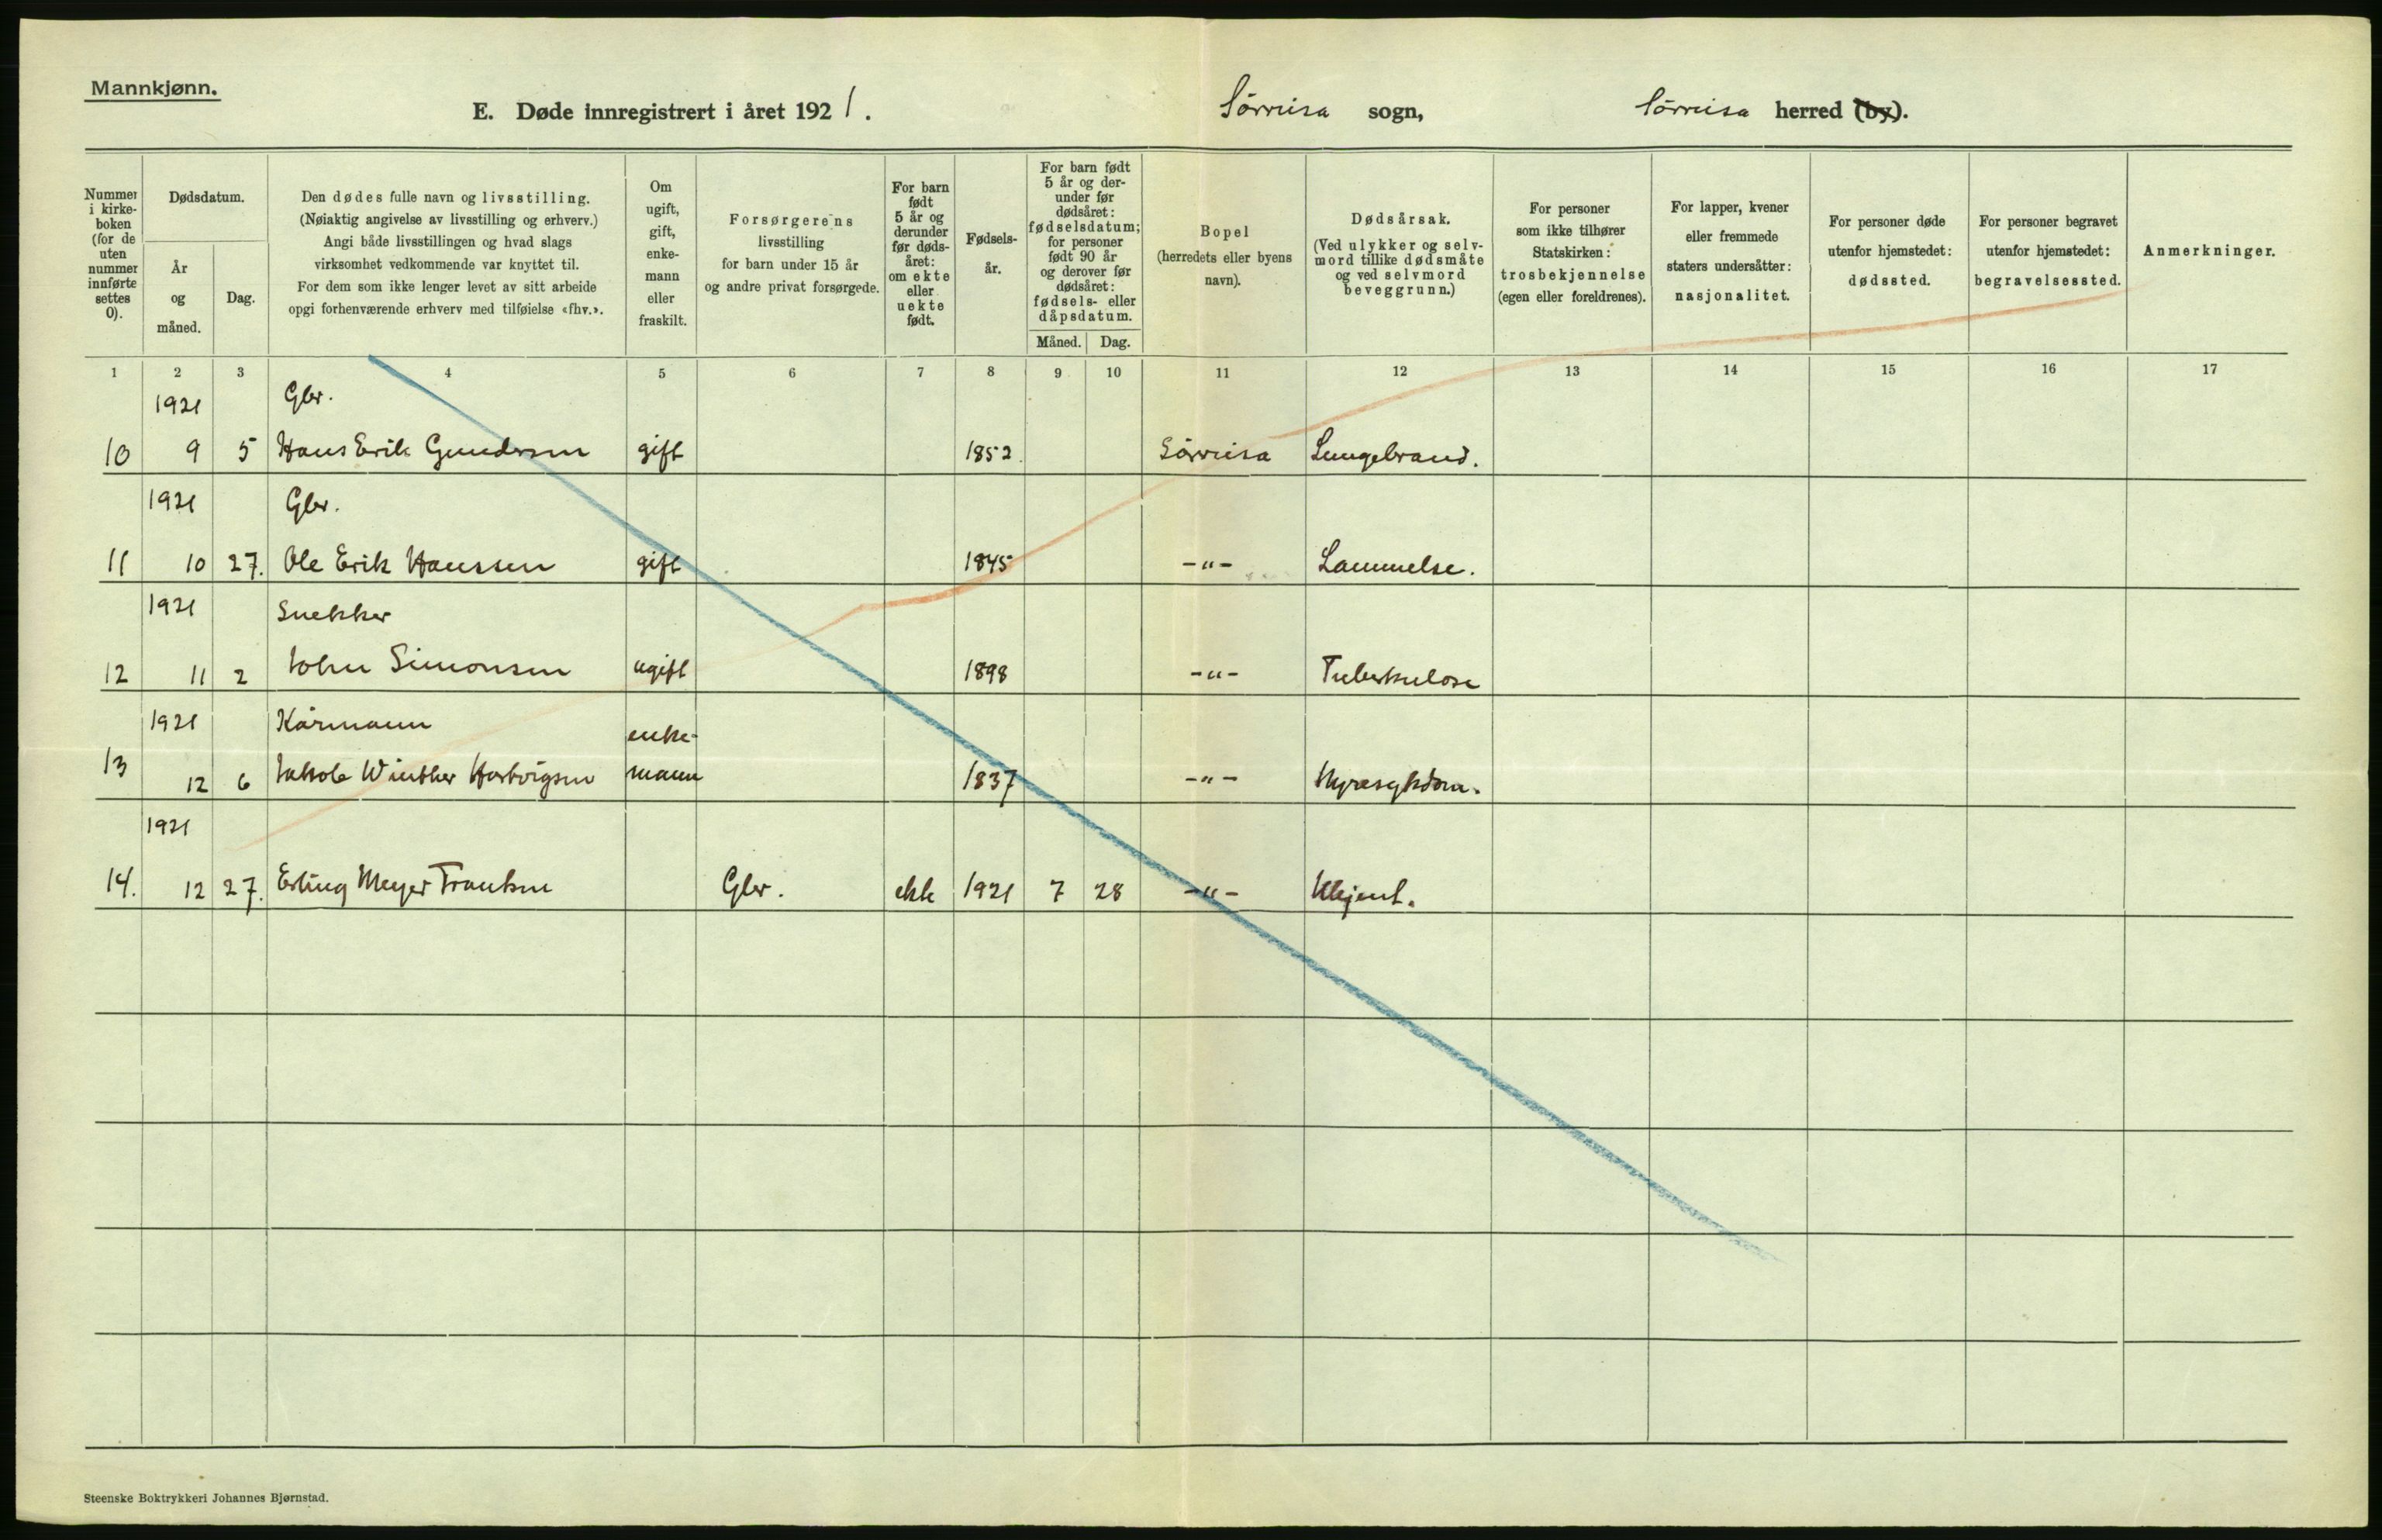 Mannkjønn.
E. Døde innregistrert i året 1921. Sørreisa sogn, Sørreisa herred (by).
Nummer i kirke-boken (for de uten nummer innførte settes 0).
Dødsdatum.
År og måned.
Dag.
Den dødes fulle navn og livsstilling.
(Nøiaktig angivelse av livsstilling og erhverv.)
Angi både livsstillingen og hvad slags
virksomhet vedkommende var knyttet til.
For dem som ikke lenger levet av sitt arbeide
opgi forhenværende erhverv med tilføielse «fhv.».
Om ugift, gift, enke-mann eller fraskilt.
Forsørgerens
livsstilling
for barn under 15 år
og andre privat forsørgede.
For barn født 5 år og derunder før døds-året: om ekte eller uekte født.
Fødsels-år.
For barn født 5 år og der-under før dødsåret: fødselsdatum; for personer født 90 år og derover før dødsåret: fødsels- eller dåpsdatum.
Måned. Dag.
Bopel
(herredets eller byens
navn).
Dødsårsak.
(Ved ulykker og selv-
mord tillike dødsmåte
og ved selvmord
beveggrunn.)
For personer
som ikke tilhører
Statskirken:
trosbekjennelse
(egen eller foreldrenes).
For lapper, kvener
eller fremmede
staters undersåtter:
nasjonalitet.
For personer døde
utenfor hjemstedet:
dødssted.
For personer begravet
utenfor hjemstedet:
begravelsessted.
Anmerkninger.
1 2 3 4 5 6 7 8 9 10 11 12 13 14 15 16 17
1921 Gbr.
10 9 5 Hans Erik Gundersen gift 1852. Sörreisa Lungebrand.
1921 Gbr.
11 10 27. Ole Erik Hanssen gift 1845 -"- Lammelse.
1921 Snekker
12 11 2 John Simonsen ugift 1898 -"- Tuberkulose
1921 Kårmann enke-
13 12 6 Jakob Winther Hartvigsen mann 1837 -"- Nyresykdom.
1921
14. 12 27. Erling Meyer Frantsen Gbr. ekte 1921 7 28 -"- Ukjent.
Steenske Boktrykkeri Johannes Bjørnstad.